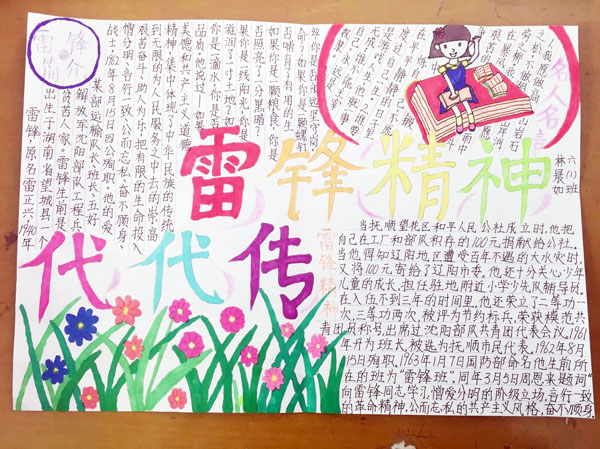 雷锋简介
雷锋,原名雷正兴,1940年
出生于湖南省望城县一个
贫苦人家。雷锋生前是
解放军沈阳部队工程兵
某部运输队长、班长、五好
战士,1962年8月15日因公殉职。他的爱
憎分明、言行一致、公而忘私、奋不顾身、
艰苦奋斗、助人为乐,把有限的生命投入
到无限的为人民服务之中去的崇高
精神,集中体现了中华民族的传统
美德和共产主义道德
品质。他说过——如果
你是一滴水,你是否
滋润了一寸土地?如
果你是一线阳光,你是
否照亮了一分黑暗?
如果你是一颗粮食,你是
否哺育了有用的生
命?如果你是一颗螺钉
你是否永远坚守岗
名人名言
六(1)班
林昙如
雷锋精神
代代传
雷锋精神
当抚顺望花区和平人民公社成立时,他把
自己在工厂和部队积存的100元捐献给公社。
当他得知辽阳地区遭受百年不遇的大水灾时,
又将100元寄给了辽阳市委。他还十分关心少年
儿童的成长,担任驻地附近小学少先队辅导员。
在入伍不到三年的时间里,他还荣立了二等功一
次,三等功两次,被评为节约标兵,荣获模范共
青团员称号,出席过沈阳部队共青团代表会议。1961
年升为班长,被选为抚顺市民代表。1962年8月
15日殉职。1963年1月7日国防部命名他生前所
在的班为"雷锋班"。同年3月5日周恩来题词"
向雷锋同志学习,憎爱分明的阶级立场,言行一致
的革命精神,公而忘私的共产主义风格,奋不顾身